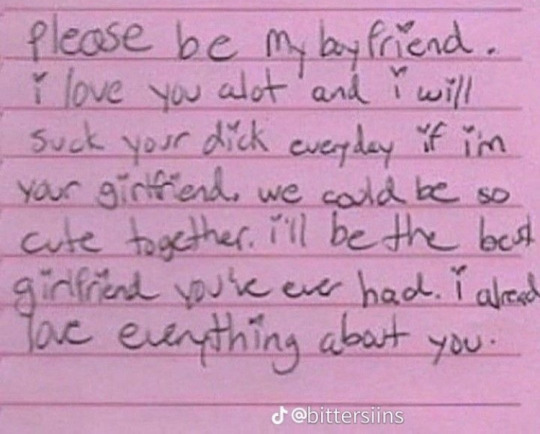 please be my boyfriend.
i love you alot and i will
suck your dick everyday if i'm
your girlfriend. we could be so
cute together. i'll be the best
girlfriend you've ever had. i alread
love everything about you.
@bittersiins